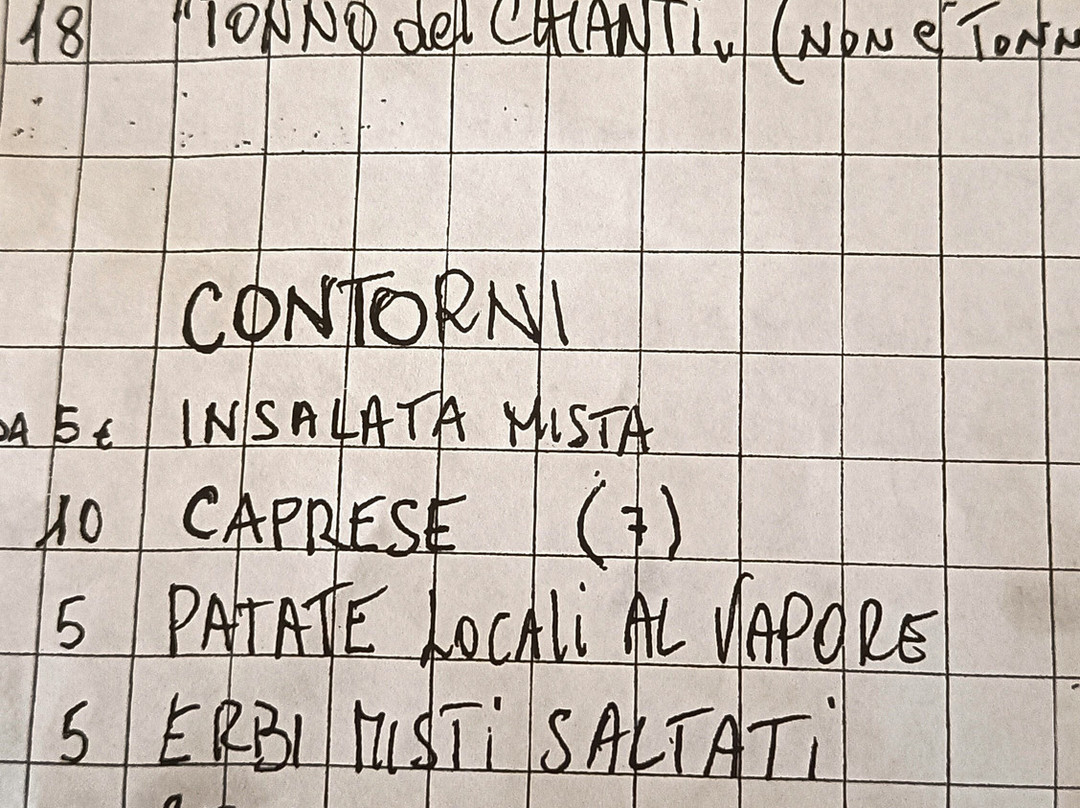 18 "TONNO del CHIANTI" (NON e' TONN
CONTORNI
DA 5 € INSALATA MISTA
10 CAPRESE (7)
5 PATATE LOCALI AL VAPORE
5 ERBI MISTI SALTATI